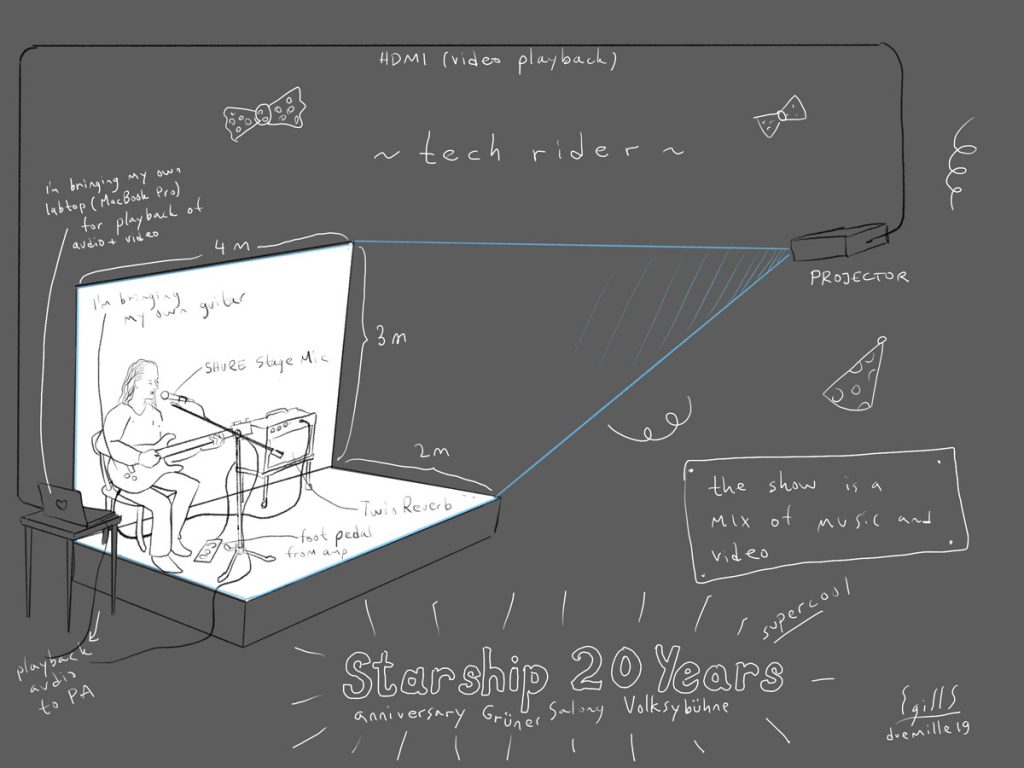 HDMI (video playback)
~ tech rider ~
I'm bringing my own
labtop (MacBook Pro)
for playback of
audio + video
4 m
I'm bringing
my own guitar
SHURE Stage Mic
3m
PROJECTOR
2m
Twin Reverb
foot pedal
from amp
the show is a
mix of music and
video
playback
audio
to PA
supercool
Starship 20 Years
anniversary Grüner Salong Volksybühne
EgillS
duemille19